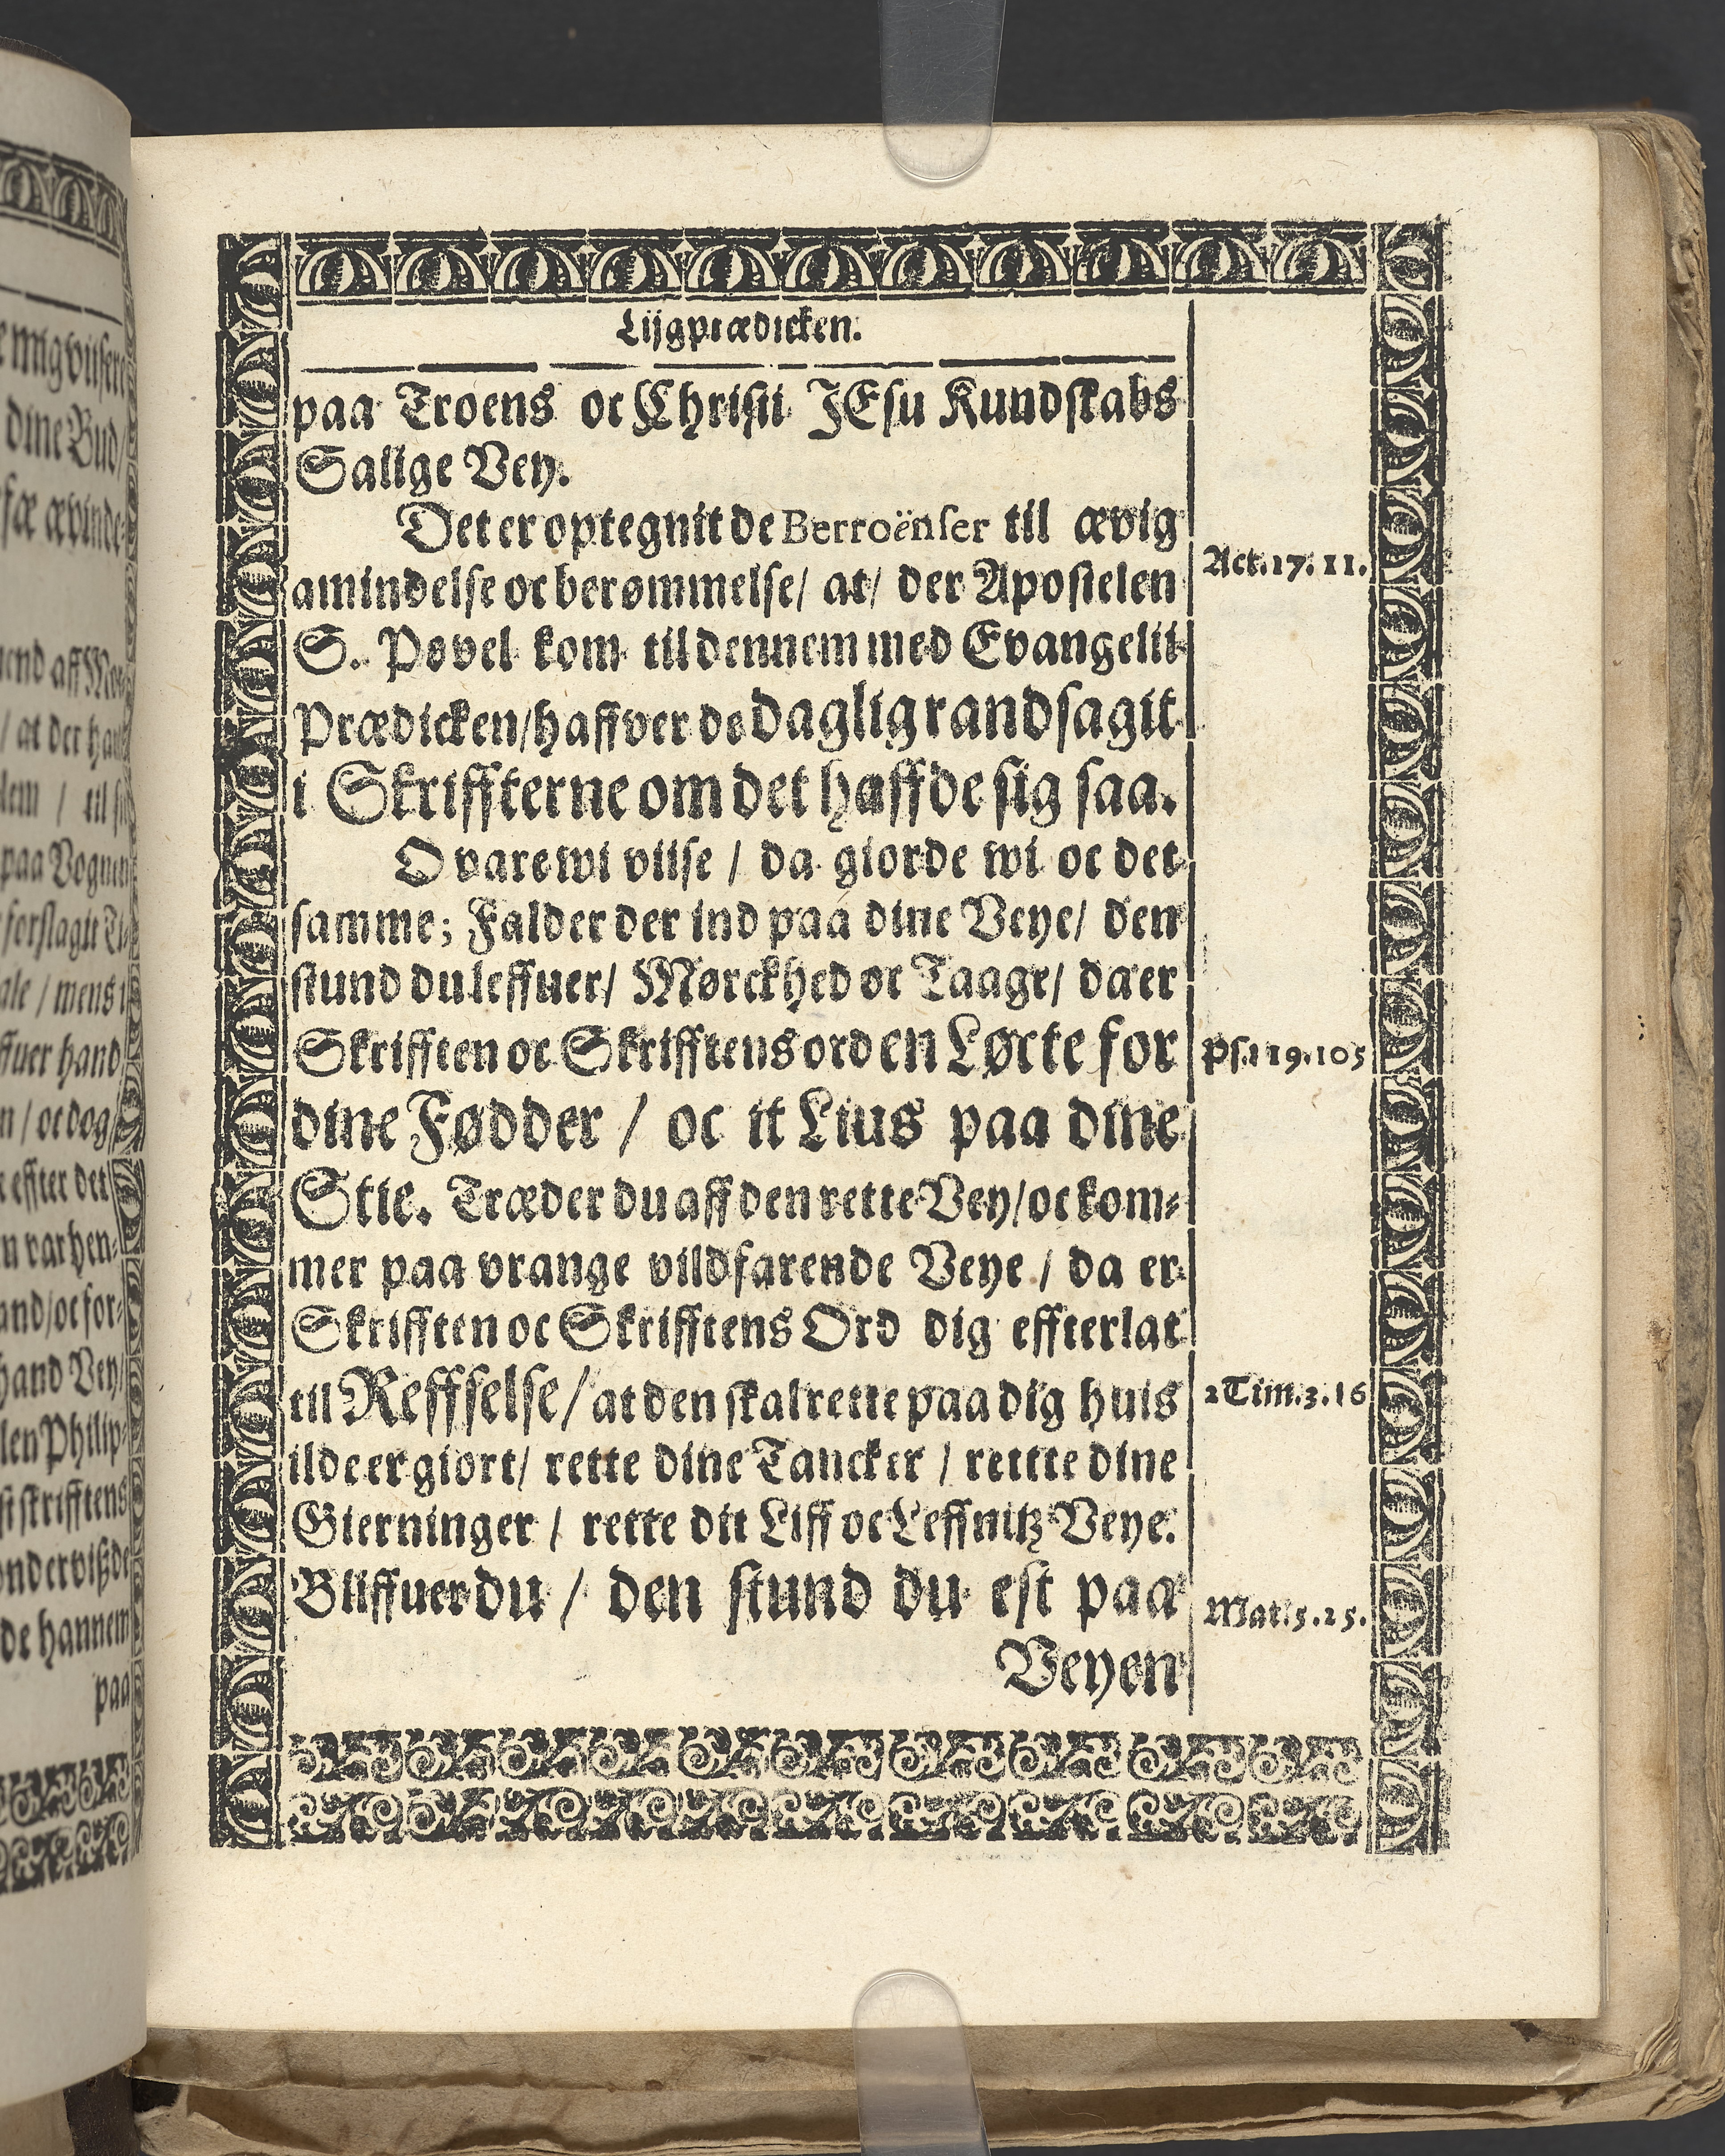 Lijgprædicken.
paa Troens oc Christi JEsu Kundskabs
Salige Vey.
Det er optegnit de Berroënser til ævig
amindelse oc berømmelse/ at/ der Apostelen
S. Povel kom til dennem med Evangelii
Prædicken/haffver de daglig randsagit
i Skriffterne om det haffde sig saa.
O vare wi viise / da giorde wi oc det
samme; Falder der ind paa dine Veye/ den
stund du leffuer/ Mørckhed oc Taage/ da er
Skrifften oc Skrifftens ord en Løcte for
dine Fødder / oc it Lius paa dine
Stie. Træder du aff den rette Vey/oc kom-
mer paa vrange vildfarende Veye / da er
Skrifften oc Skrifftens Ord dig effterlat
til Reffselse/ at den skal rette paa dig huis
ilde er giort/ rette dine Tancker / rettte dine
Gierninger / rette dit Liff oc Leffnitz Veye.
Bliffuer du / den stund du est paa
Veyen
Act. 17. 11.
Ps. 119. 105
2 Tim. 3. 16
Mat. 5. 25.
e mig
dine Bud/
end aff
/ at der
/ til
paa Vognen
forslagit
ale / mens
ffuer hand
n / oc dog
effter det
n var hen-
and/oc for-
hand Vey/
len Philip-
skrifftens
ondervißde
de hannem
paa